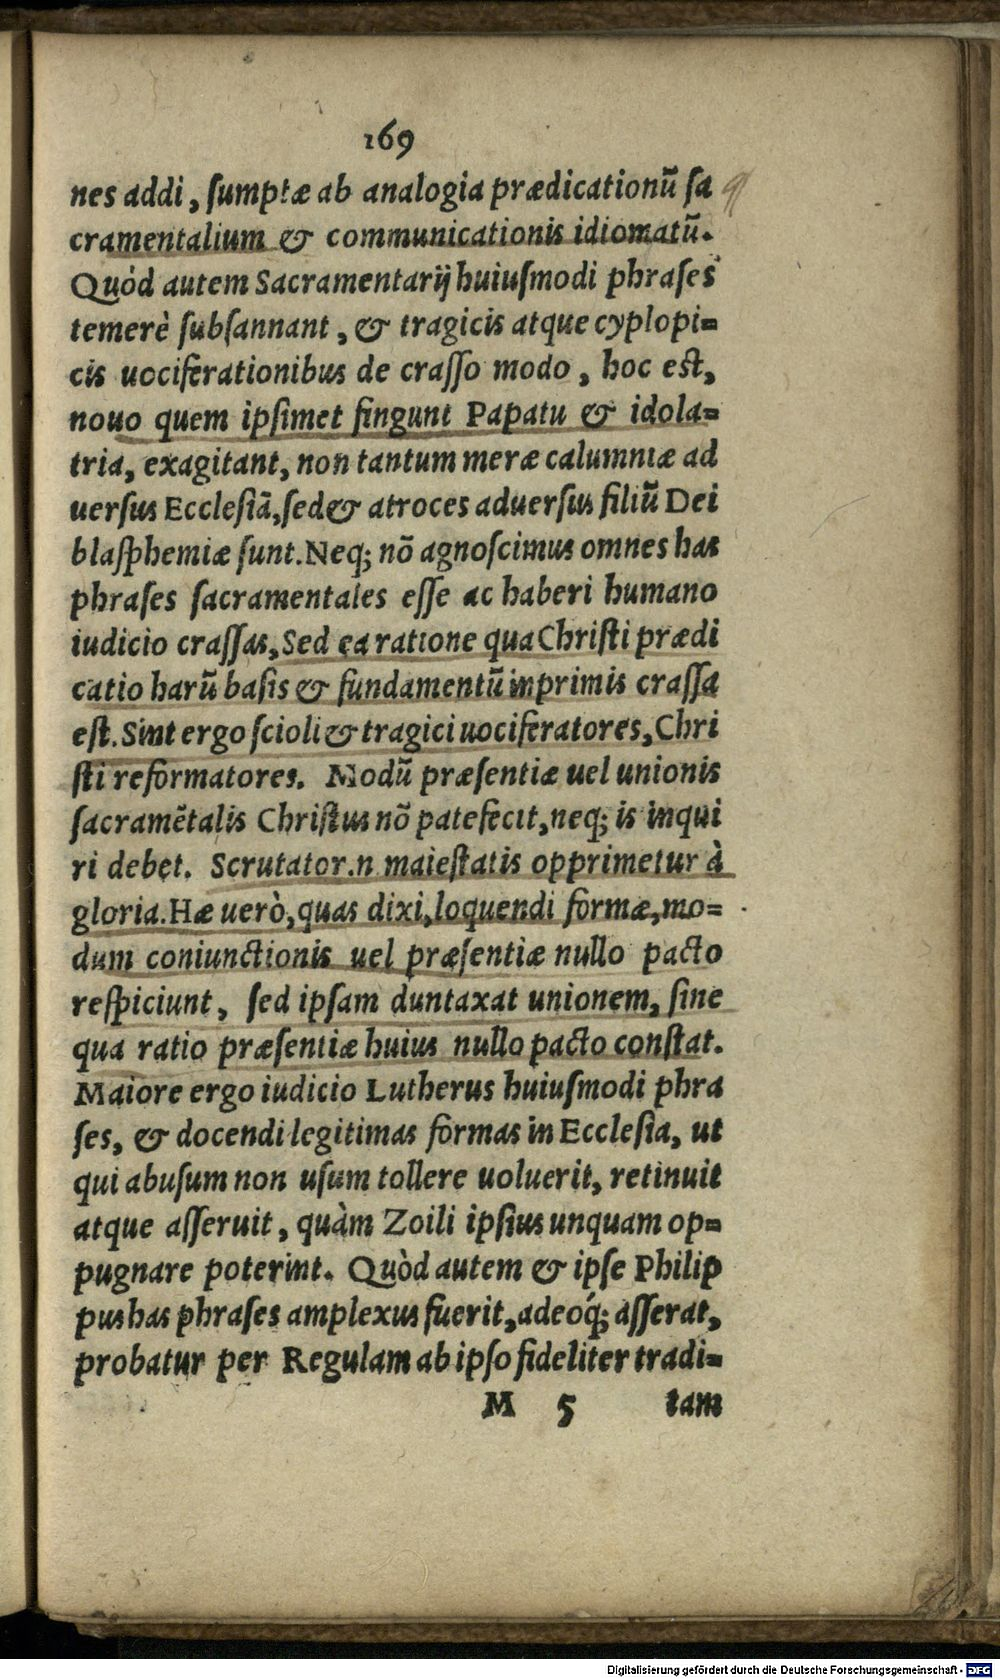 169
nes addi, sumptæ ab analogia prædicationũ sa
cramentalium & communicationis idiomatũ.
Quòd autem Sacramentarij huiusmodi phrases
temerè subsannant, & tragicis atque cyplopi=
cis uociferationibus de crasso modo, hoc est,
nouo quem ipsimet fingunt Papatu & idola=
tria, exagitant, non tantum meræ calumniæ ad
uersus Ecclesiã, sed & atroces aduersus filiũ Dei
blasphemiæ sunt. Neq; nõ agnoscimus omnes has
phrases sacramentales esse ac haberi humano
iudicio crassas, Sed ea ratione qua Christi prædi
catio harũ basis & fundamentũ inprimis crassa
est. Sint ergo scioli & tragici uociferatores, Chri
sti reformatores. Modũ præsentiæ uel unionis
sacramẽtalis Christus nõ patefecit, neq; is inqui
ri debet. Scrutator.n maiestatis opprimetur à
gloria. Hæ uerò, quas dixi, loquendi formæ, mo=
dum coniunctionis uel præsentiæ nullo pacto
respiciunt, sed ipsam duntaxat unionem, sine
qua ratio præsentiæ huius nullo pacto constat.
Maiore ergo iudicio Lutherus huiusmodi phra
ses, & docendi legitimas formas in Ecclesia, ut
qui abusum non usum tollere uoluerit, retinuit
atque asseruit, quàm Zoili ipsius unquam op=
pugnare poterint. Quòd autem & ipse Philip
pus has phrases amplexus fuerit, adeóq; asserat,
probatur per Regulam ab ipso fideliter tradi=
M 5 tam
Digitalisierung gefördert durch die Deutsche Forschungsgemeinschaft - DFG